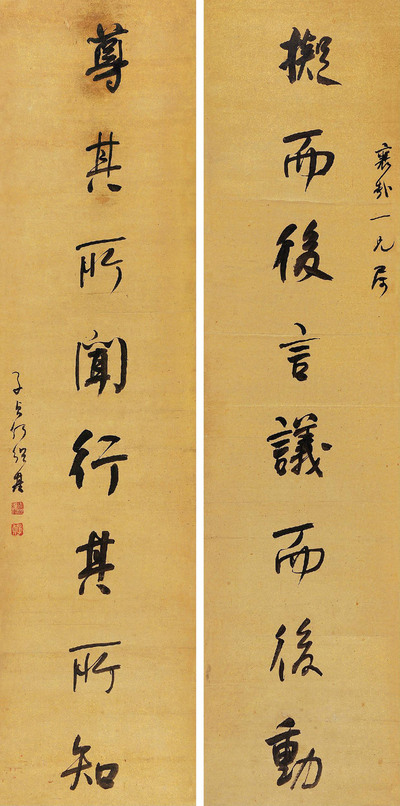 襄哉一兄属
擬而後言議而後動
尊其所聞行其所知
子貞何紹基